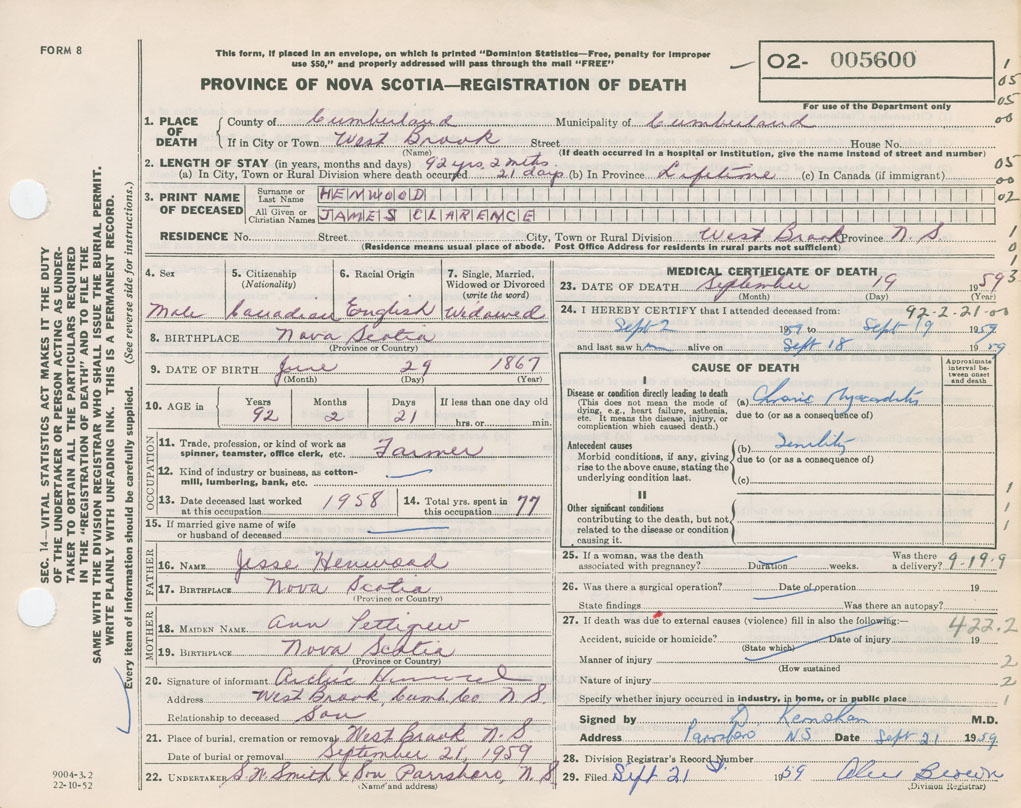 FORM 8
This form, if placed in an envelope, on which is printed "Dominion Statistics—Free, penalty for improper
use $50," and properly addressed will pass through the mail "FREE"
PROVINCE OF NOVA SCOTIA—REGISTRATION OF DEATH
02- 005600
For use of the Department only
1
05
05
00
05
00
02
1
0
1
3
SEC. 14—VITAL STATISTICS ACT MAKES IT THE DUTY
OF THE UNDERTAKER OR PERSON ACTING AS UNDER-
TAKER TO OBTAIN ALL THE PARTICULARS REQUIRED
IN THE "REGISTRATION OF DEATH" AND TO FILE THE
SAME WITH THE DIVISION REGISTRAR WHO SHALL ISSUE THE BURIAL PERMIT.
WRITE PLAINLY WITH UNFADING INK. THIS IS A PERMANENT RECORD.
Every item of information should be carefully supplied. (See reverse side for instructions.)
1. PLACE OF DEATH
County of Cumberland Municipality of Cumberland
If in City or Town West Brook Street House No.
(Name) (If death occurred in a hospital or institution, give the name instead of street and number)
2. LENGTH OF STAY (in years, months and days) 92 yrs. 2 mths.
(a) In City, Town or Rural Division where death occurred 21 days (b) In Province Lifetime (c) In Canada (if immigrant)
3. PRINT NAME OF DECEASED
Surname or Last Name HENWOOD
All Given or Christian Names JAMES CLARENCE
RESIDENCE No. Street City, Town or Rural Division West Brook Province N. S.
(Residence means usual place of abode. Post Office Address for residents in rural parts not sufficient)
4. Sex
Male
5. Citizenship
(Nationality)
Canadian
6. Racial Origin
English
7. Single, Married,
Widowed or Divorced
(write the word)
Widowed
8. BIRTHPLACE Nova Scotia
(Province or Country)
9. DATE OF BIRTH June 29 1867
(Month) (Day) (Year)
10. AGE in Years Months Days If less than one day old
92 2 21 hrs. or min.
OCCUPATION
11. Trade, profession, or kind of work as
spinner, teamster, office clerk, etc. Farmer
12. Kind of industry or business, as cotton-
mill, lumbering, bank, etc.
13. Date deceased last worked
at this occupation 1958
14. Total yrs. spent in
this occupation 77
15. If married give name of wife
or husband of deceased
FATHER
16. NAME Jesse Henwood
17. BIRTHPLACE Nova Scotia
(Province or Country)
MOTHER
18. MAIDEN NAME Ann Pettigrew
19. BIRTHPLACE Nova Scotia
(Province or Country)
20. Signature of informant Archie Henwood
Address West Brook, Cumb. Co. N. S.
Relationship to deceased Son
21. Place of burial, cremation or removal West Brook N S
Date of burial or removal September 21, 1959
22. UNDERTAKER S. W. Smith & Son Parrsboro, N. S.
(Name and address)
9004-3.2
22-10-52
MEDICAL CERTIFICATE OF DEATH
23. DATE OF DEATH September 19 1959
(Month) (Day) (Year)
24. I HEREBY CERTIFY that I attended deceased from: 92-2-21-00
Sept 2 1959 to Sept 19 1959
and last saw him alive on Sept 18 1959
CAUSE OF DEATH
Approximate
interval be-
tween onset
and death
I
Disease or condition directly leading to death
(This does not mean the mode of
dying, e.g., heart failure, asthenia,
etc. It means the disease, injury, or
complication which caused death.)
(a) Chronic Myocarditis
due to (or as a consequence of)
Antecedent causes
Morbid conditions, if any, giving
rise to the above cause, stating the
underlying condition last.
(b) Senility
due to (or as a consequence of)
(c)
II
Other significant conditions
contributing to the death, but not
related to the disease or condition
causing it.
1
1
1
25. If a woman, was the death
associated with pregnancy? Duration weeks. Was there
a delivery? 9-19-9
26. Was there a surgical operation? Date of operation 19
State findings Was there an autopsy?
27. If death was due to external causes (violence) fill in also the following:— 422.2
Accident, suicide or homicide? Date of injury 19
(State which)
Manner of injury 2
(How sustained
Nature of injury 2
Specify whether injury occurred in industry, in home, or in public place 1
Signed by D. M.D.
Address Parrsboro NS Date Sept 21 1959.
28. Division Registrar's Record Number
29. Filed Sept 21 1959 Brown
(Division Registrar)